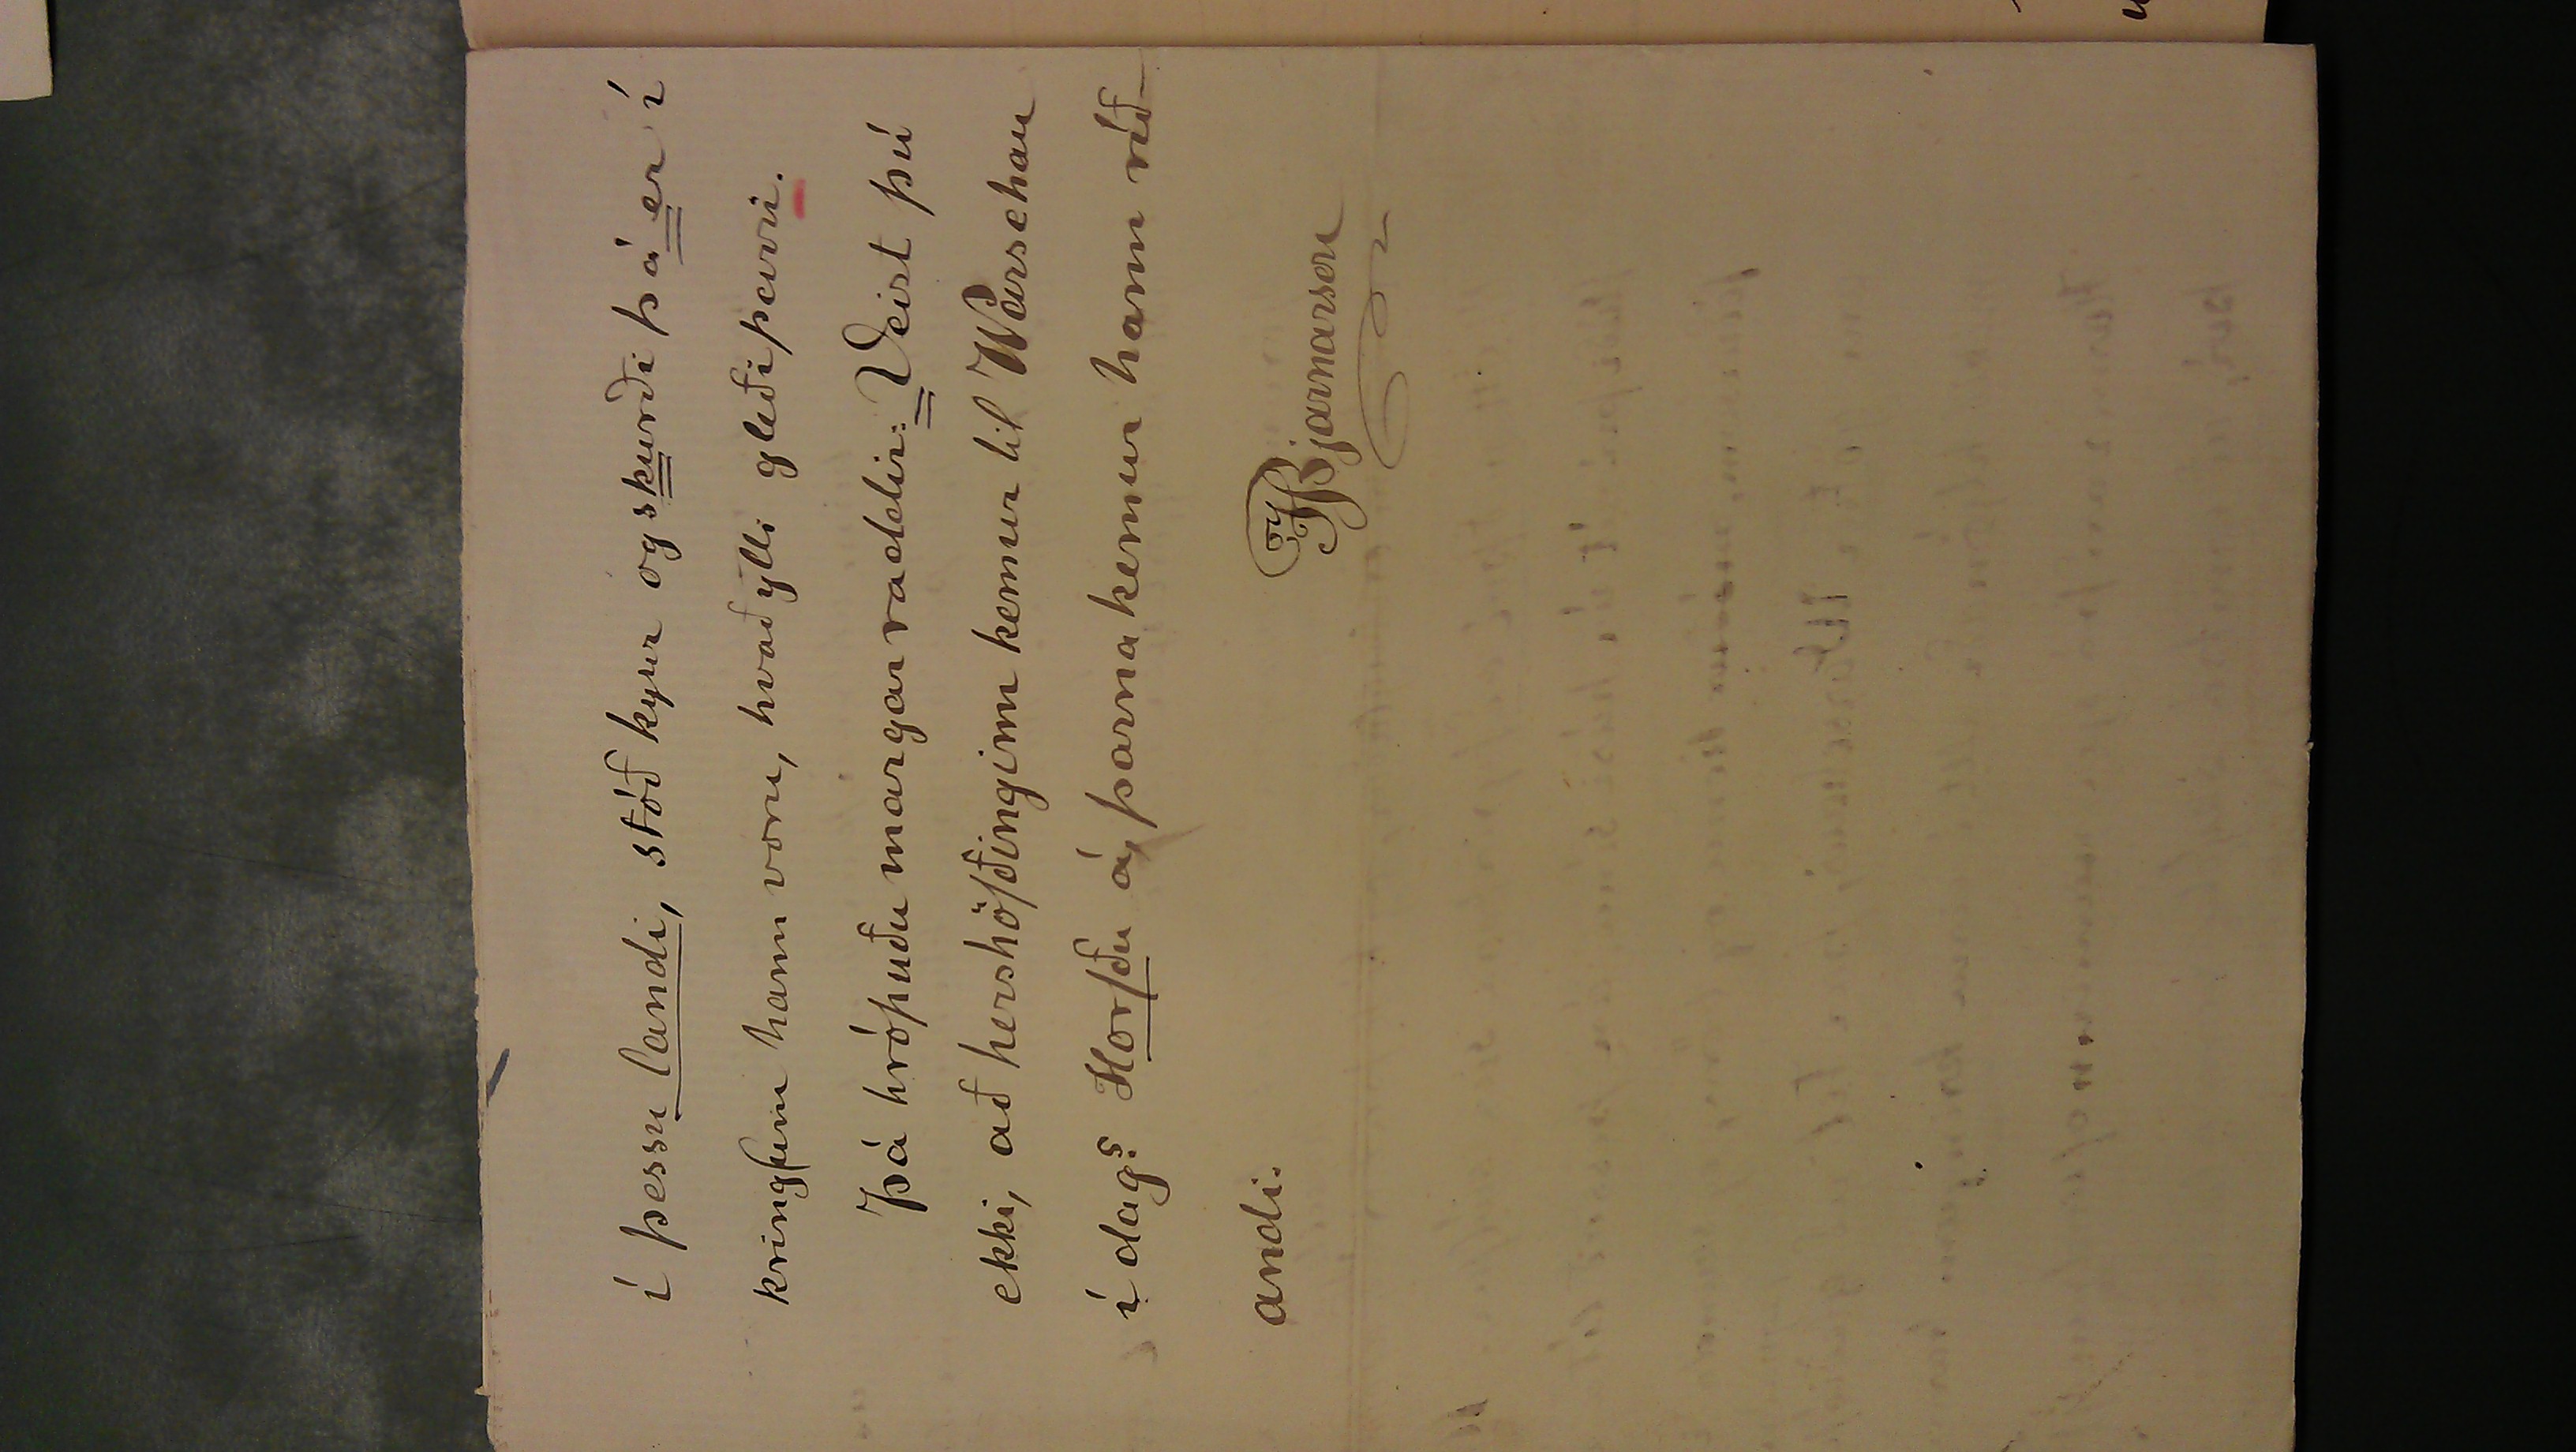 í þessu landi, stóð kyrr og skurði þá er í
kringhum hann voru, hvað ylli gleði þarri.
Þá hrópuðu margar raddir: Veist þú
ekki, að hershöfðinginn kemur til Warschau
í dag? Horfðu á, þarna kemur hann ríð-
andi.
Bjarnarson